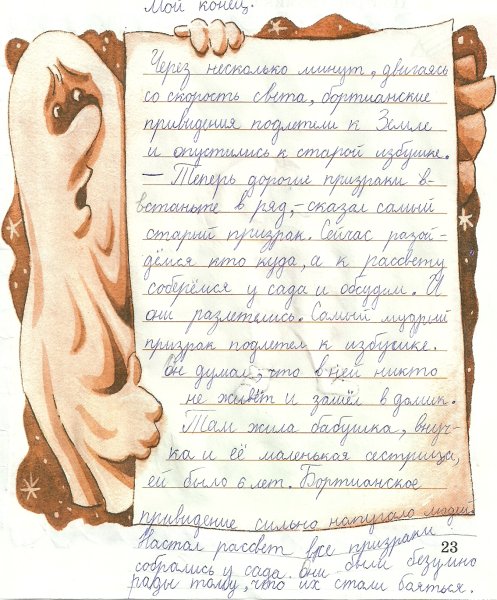 Мой конец.
Через несколько минут, двигаясь
со скорость света, бортианские
привидения подлетели к Земле
и опустились к старой избушке.
— Теперь дорогие призраки в-
встаньте в ряд, – сказал самый
старый призрак. Сейчас разой-
дёмся кто куда, а к рассвету
соберёмся у сада и обсудим. И
они разлетелись. Самый мудрый
призрак подлетел к избушке.
Он думал, что в ней никто
не живёт и зашёл в домик.
Там жила бабушка, внуч-
ка и её маленькая сестрица,
ей было 6 лет. Бортианское
привидение сильно напугало людей
Настал рассвет все призраки
23
собрались у сада. Они были безумно
рады тому, что их стали бояться.